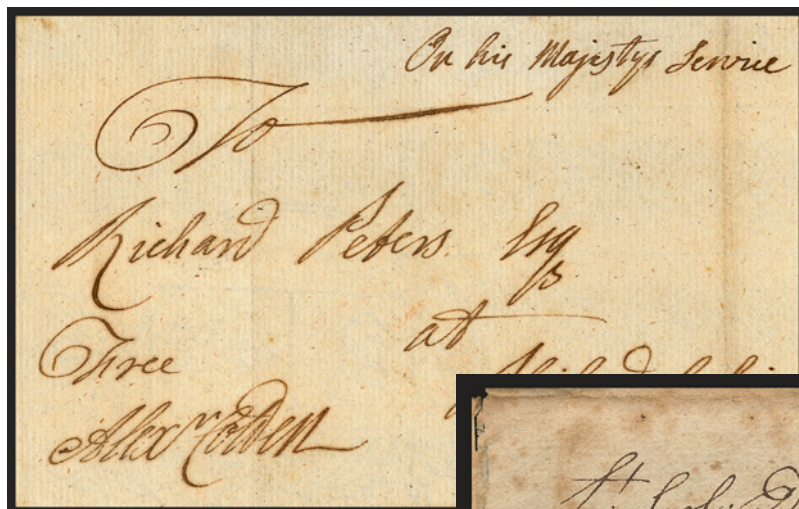 On his Majestys Service
To
Richard Peters Esqr
at
Free
Alexr Colden